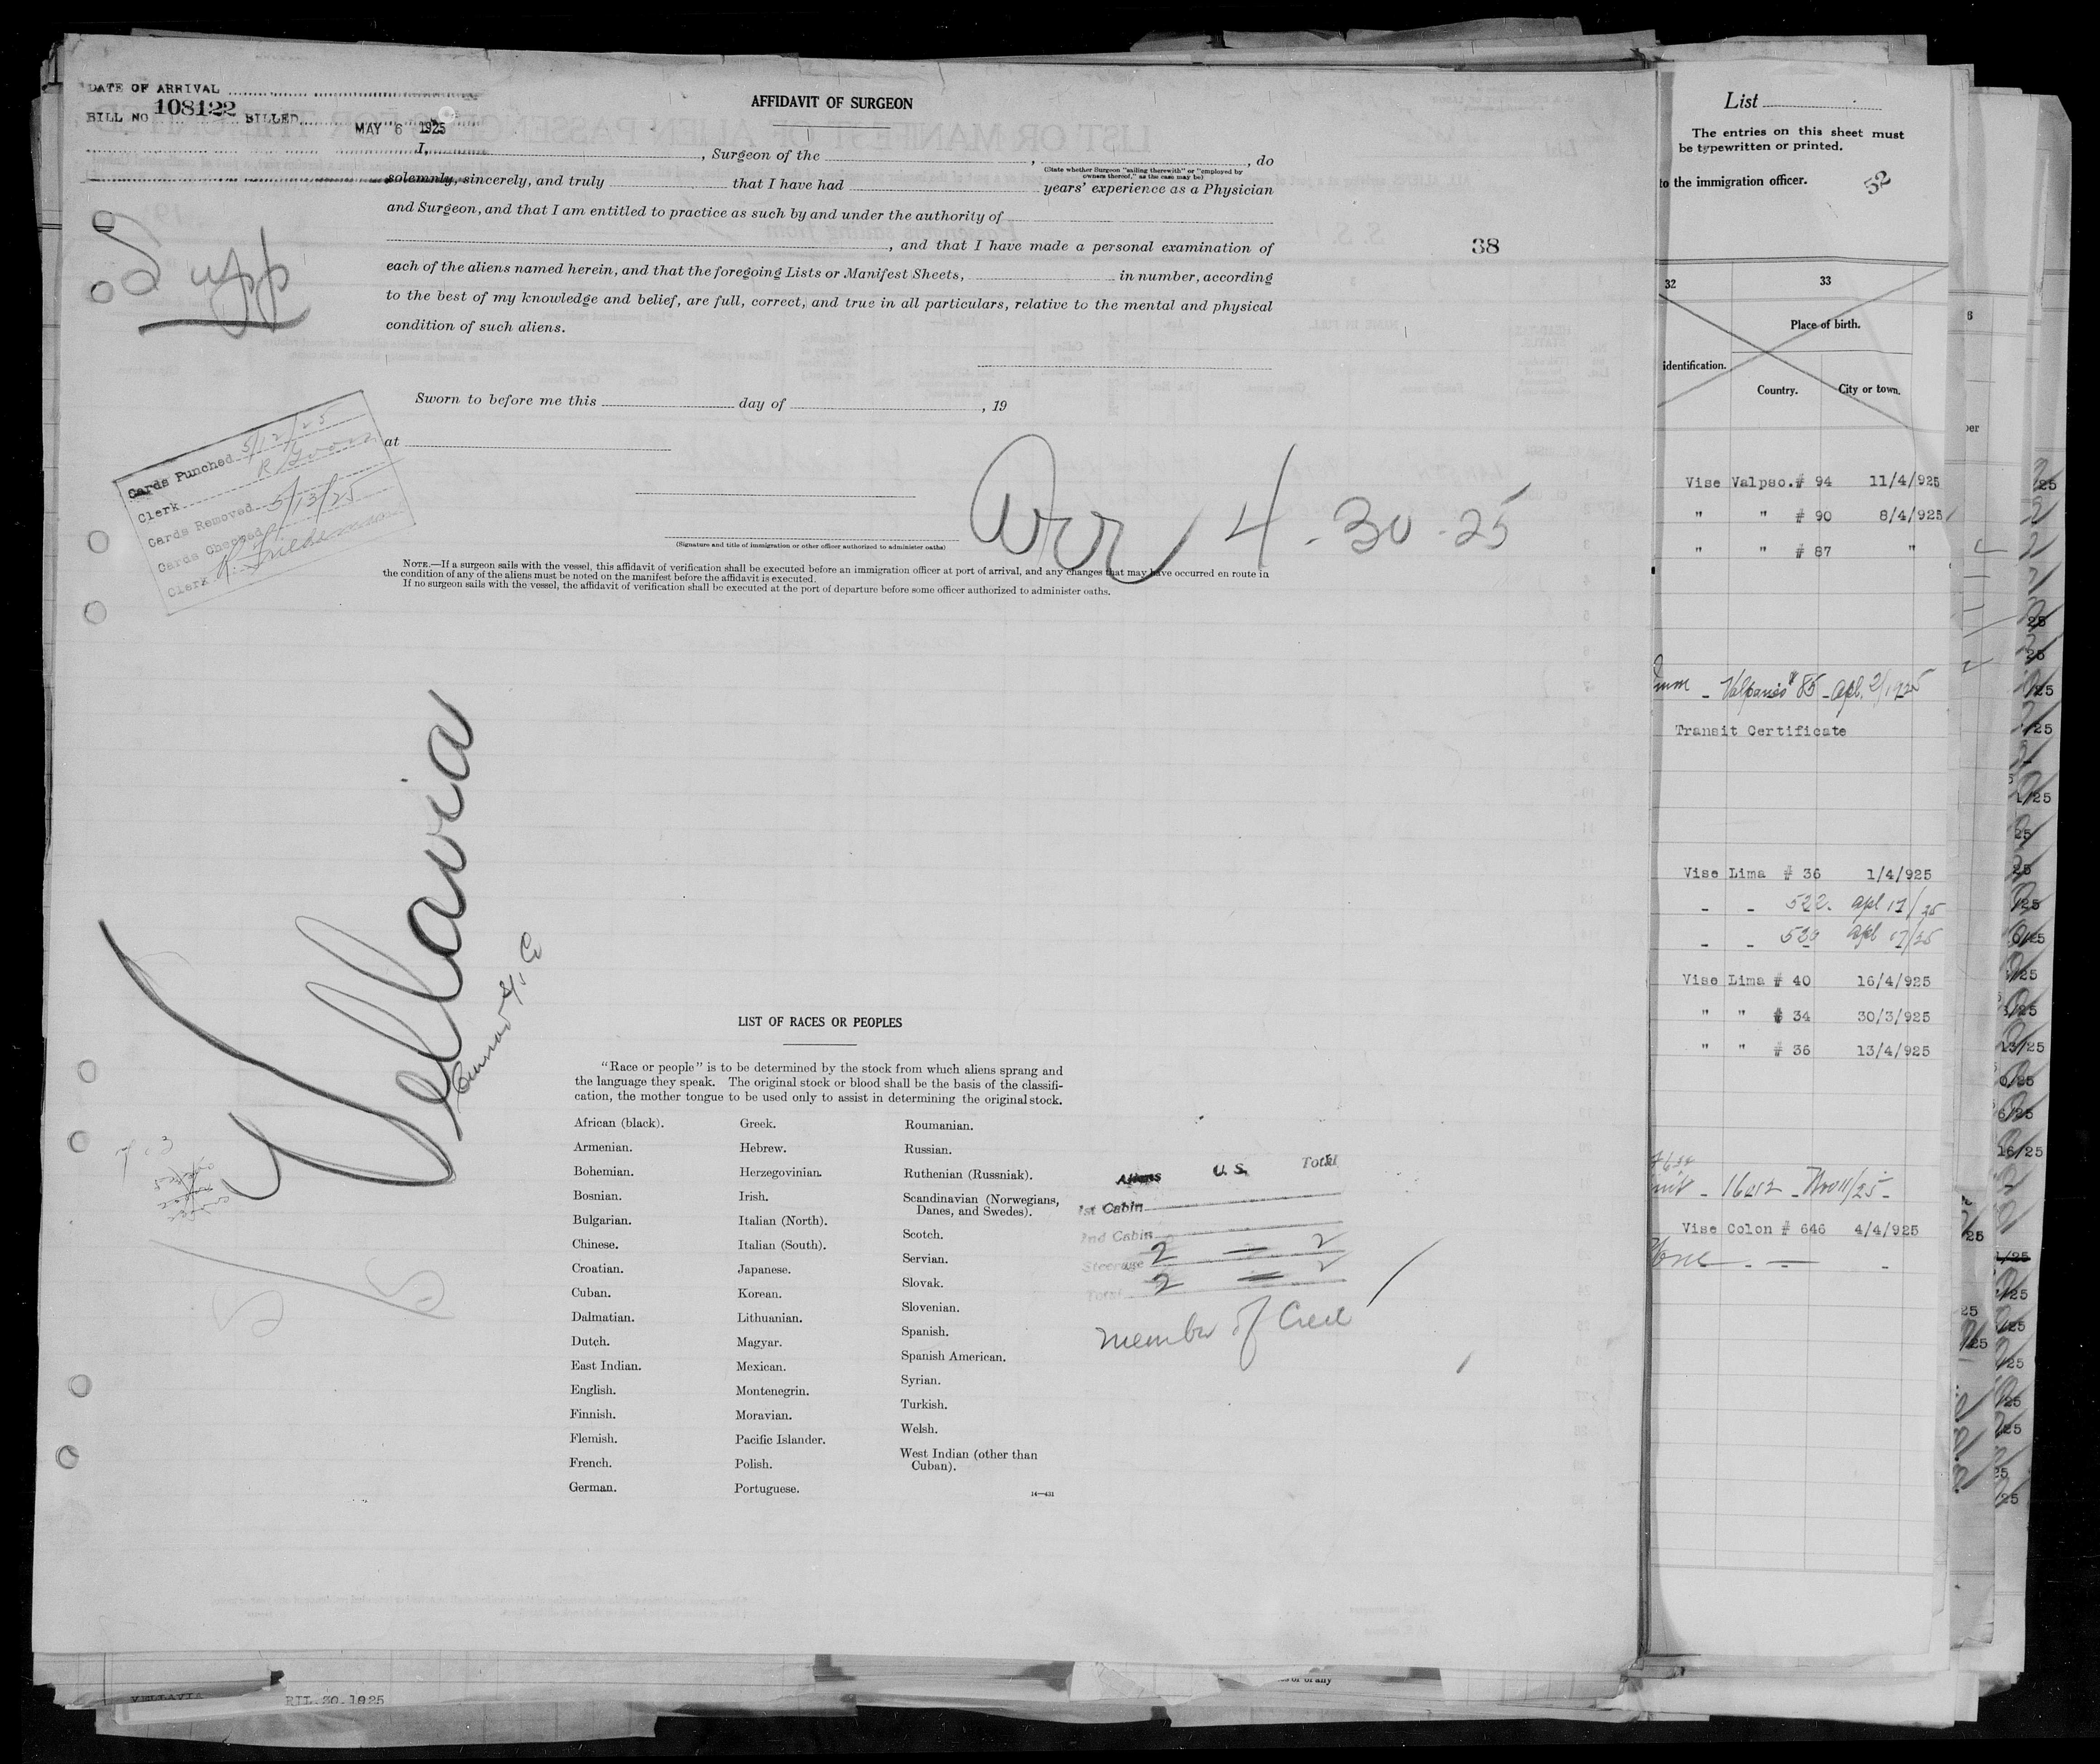 DATE OF ARRIVAL
BILL NO 108122 BILLED MAY 6 1925
AFFIDAVIT OF SURGEON
I, , Surgeon of the , , do
(State whether Surgeon "sailing therewith" or "employed by owners thereof," as the case may be)
solemnly, sincerely, and truly that I have had years' experience as a Physician
and Surgeon, and that I am entitled to practice as such by and under the authority of
, and that I have made a personal examination of
each of the aliens named herein, and that the foregoing Lists or Manifest Sheets, in number, according
to the best of my knowledge and belief, are full, correct, and true in all particulars, relative to the mental and physical
condition of such aliens.
38
Supp
Sworn to before me this day of , 19
at
Cards Punched 5/12/25
Clerk R
Cards Removed 5/13/25
Cards Checked
Clerk
Arr 4-30-25
(Signature and title of immigration or other officer authorized to administer oaths)
NOTE.—If a surgeon sails with the vessel, this affidavit of verification shall be executed before an immigration officer at port of arrival, and any changes that may have occurred en route in
the condition of any of the aliens must be noted on the manifest before the affidavit is executed.
If no surgeon sails with the vessel, the affidavit of verification shall be executed at the port of departure before some officer authorized to administer oaths.
Vellavia
Cunard S/S Co
LIST OF RACES OR PEOPLES
"Race or people" is to be determined by the stock from which aliens sprang and
the language they speak. The original stock or blood shall be the basis of the classifi-
cation, the mother tongue to be used only to assist in determining the original stock.
African (black).
Armenian.
Bohemian.
Bosnian.
Bulgarian.
Chinese.
Croatian.
Cuban.
Dalmatian.
Dutch.
East Indian.
English.
Finnish.
Flemish.
French.
German.
Greek.
Hebrew.
Herzegovinian.
Irish.
Italian (North).
Italian (South).
Japanese.
Korean.
Lithuanian.
Magyar.
Mexican.
Montenegrin.
Moravian.
Pacific Islander.
Polish.
Portuguese.
Roumanian.
Russian.
Ruthenian (Russniak).
Scandinavian (Norwegians,
Danes, and Swedes).
Scotch.
Servian.
Slovak.
Slovenian.
Spanish.
Spanish American.
Syrian.
Turkish.
Welsh.
West Indian (other than
Cuban).
14—431
Aliens U.S. Total
1st Cabin
2nd Cabin
Steerage 2 — 2
Total 2 — 2
member of Crew
List
The entries on this sheet must
be typewritten or printed.
to the immigration officer.
52
32 33
Place of birth.
identification.
Country. City or town.
Vise Valpso.# 94 11/4/925
" " # 90 8/4/925
" " # 87 "
Valparaiso # 85 - Apl. 2/1925
Transit Certificate
Vise Lima # 36 1/4/925
- - 522. Apl 17/25
- - 520 Apl 17/25
Vise Lima # 40 16/4/925
" " # 34 30/3/925
" " # 36 13/4/925
Vise Colon # 646 4/4/925
RIL.30.1925